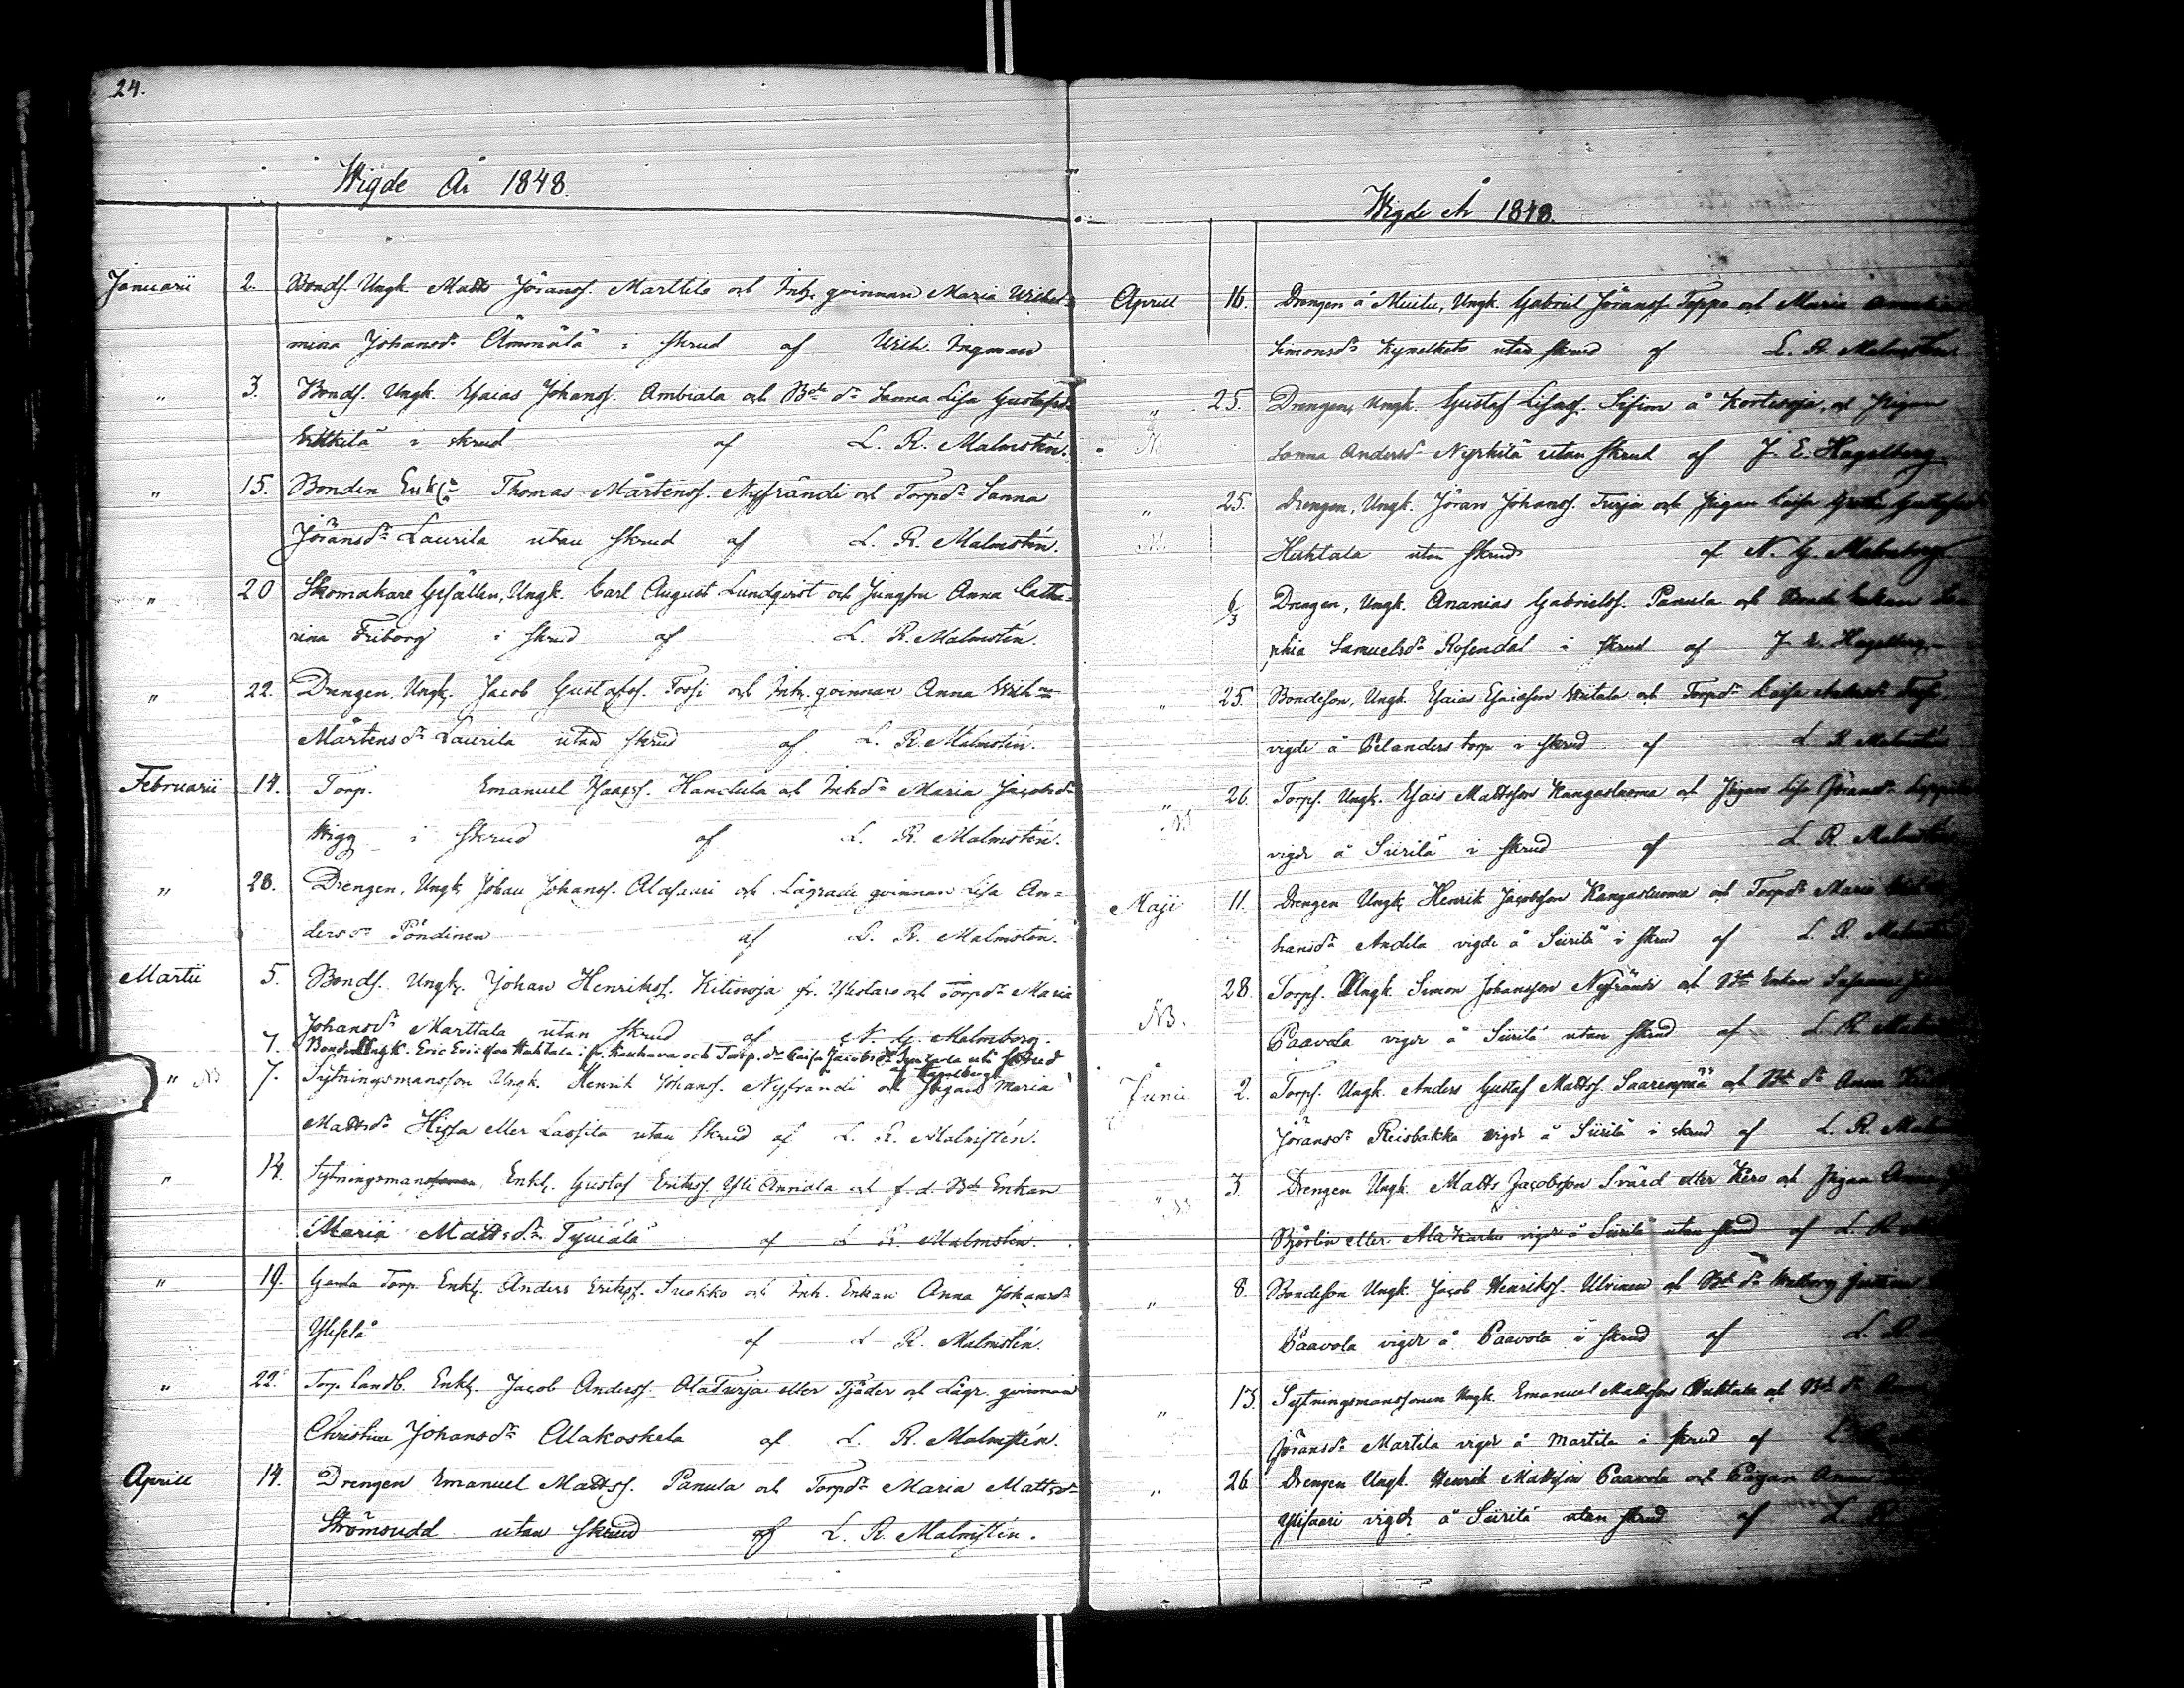 24.
Wigde År 1848.
Januarii 2. Bonds. Ungk. Matts Jöranss. Marttila och Inh. qvinnan Maria Wilhel-
mina Johansdr Ämmälä i skrud af Wilh. Ingman
" 3. Bonds. Ungk. Esaias Johanss. Ambiala och Bde dr Sanna Lisa Gustafsdr
Erkkilä i skrud af L. R. Malmstén.
" 15. Bonden Enkl. Thomas Mårtenss. Nyfrändi och Torpdr Sanna
Jöransdr Laurila utan skrud af L. R. Malmstén.
" 20 Skomakare Gesällen, Ungk. Carl August Lundqvist och Jungfru Anna Catha-
rina Friborg i skrud af L. R. Malmstén.
" 22. Drengen, Ungk. Jacob Gustafss. och Inh. qvinnan Anna
Mårtensdr Laurila utan skrud af L. R. Malmstén.
Februarii 14. Torp. Emanuel Isaacss. Handula och Inhdr Maria Jacobsdr
Wigg i skrud af L. R. Malmstén.
" 28. Drengen, Ungk. Johan Johanss. Alasaari och Lägrade qvinnan Lisa An-
dersdr Pöndinen af L. R. Malmstén.
Martii 5. Bonds. Ungk. Johan Henrikss. Kitinoja fr. Ylistaro och Torpdr Maria
Johansdr Marttala utan skrud af N. G. Malmberg.
7. Bonden Ungk. Eric Ericsson Huhtala i fr. Kauhava och Torp. dr Caisa Jacobsdr utan skrud
af Hagelberg
" NB 7. Sytningsmansson Ungk. Henrik Johanss. Nyfrändi och Pigan Maria
Mattsdr Hissa eller Lassila utan skrud af L. R. Malmstén.
" 14. Sytningsman Enkl. Gustaf Erikss. Yli Annala och f. d. Bde Enkan
Maria Mattsdr af L. R. Malmstén.
" 19. Gamla Torp. Enkl. Anders Erikss. Suokko och Inh. Enkan Anna Johansdr
af L. R. Malmstén.
" 22. Torp. Landb. Enkl. Jacob Anderss. AlaTurja eller Tjäder och Lägr. qvinnan
Christina Johansdr Alakoskela af L. R. Malmstén.
Aprill 14. Drengen Emanuel Mattss. Panula och Torpdr Maria Mattsdr
Strömsudd utan skrud af L. R. Malmstén.
Wigde År 1848.
Aprill 16. Drengen å Ungk. Gabriel Jöranss. Toppo och Maria
Simonsdr utan skrud af L. R. Malmstén
" 25. Drengen, Ungk. Gustaf å Kortesoja, och Pigan
N Sanna Andersdr Nyrhilä utan skrud af J. E. Hagelberg
" 25. Drengen, Ungk. Jöran Johanss. Turja och Pigan Caisa Greta Gustafsdr
Huhtala utan skrud af N. G. Malmberg
6/3 Drengen, Ungk. Ananias Gabrielss. Panula och Bonde Enkan So-
phia Samuelsdr Rosendal i skrud af J. E. Hagelberg.
" 25. Bondeson, Ungk. Esaias Esaiasson Wiitala och Torpdr Caisa
vigde å Pelanders torp i skrud af L. R. Malmstén
" 26. Torps. Ungk. Esais Mattsson Kangasluoma och Pigan Lisa Jöransdr
NB vigde å Siirilä i skrud af L. R. Malmstén
Maji 11. Drengen Ungk. Henrik Jacobsson Kangasluoma och Torpdr Maria
hansdr Andila vigde å Siirilä i skrud af L. R.
28. Torps. Ungk. Simon Johansson Nyfrändi och Bde Enkan Susanna
NB. Paavola vigde å Siirilä utan skrud af L. R.
Junii 2. Torps. Ungk. Anders Gustaf Mattss. Saarenpää och Bde dr Anna
Jöransdr Reisbakka vigde å Siirilä i skrud af L. R.
" 3. Drengen Ungk. Matts Jacobsson Svärd eller Kero och Pigan
Björlin eller vigde å Siirilä utan skrud af L. R.
" 8. Bondeson Ungk. Jacob Henrikss. Ulvinen och Bde dr
Paavola vigde å Paavola i skrud af L. R.
" 13. Sytningsmanssonen Ungk. Emanuel Mattsson Huhtala och Bde dr
Jöransdr Martila vigde å Martila i skrud af L. R.
" 26. Drengen Ungk. Henrik Mattsson Paavola och Pigan Anna
Ylisaari vigde å Siirilä utan skrud af L. R.